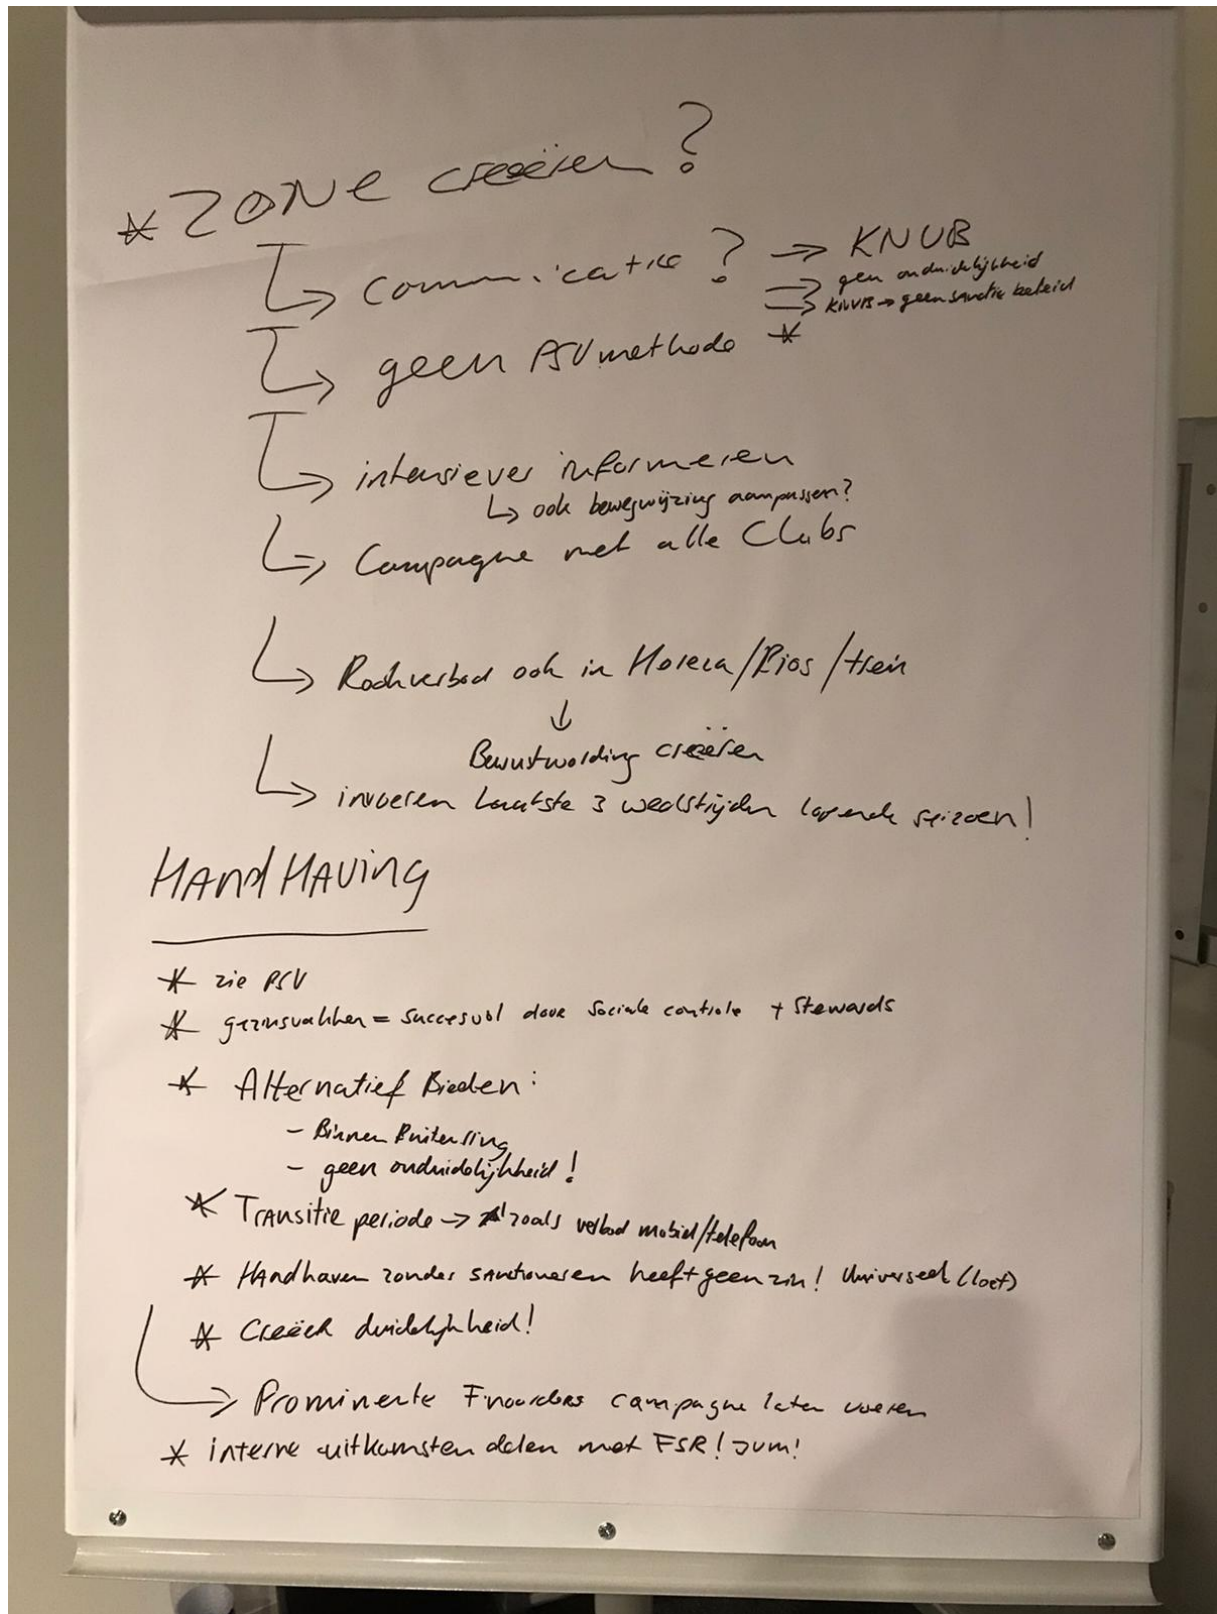 * ZONE creëren?
↳ communicatie? → KNVB
→ geen onduidelijkheid
→ KNVB → geen sanctie beleid
↳ geen PSV methode *
↳ intensiever informeren
↳ ook bewegwijzing aanpassen?
↳ Campagne met alle Clubs
↳ Rookverbod ook in Horeca/Bios/trein
↓
Bewustwording creëren
↳ invoeren laatste 3 wedstrijden lopende seizoen!
HANDHAVING
* zie PSV
* gezinsvakken = succesvol door sociale controle + Stewards
* Alternatief Bieden:
- Binnen Buitenring
- geen onduidelijkheid!
* Transitie periode → zoals verbod mobiel/telefoon
* Handhaven zonder sanctioneren heeft geen zin! Universeel
* Creëer duidelijkheid!
→ Prominente campagne laten voeren
* interne uitkomsten delen met FSR!